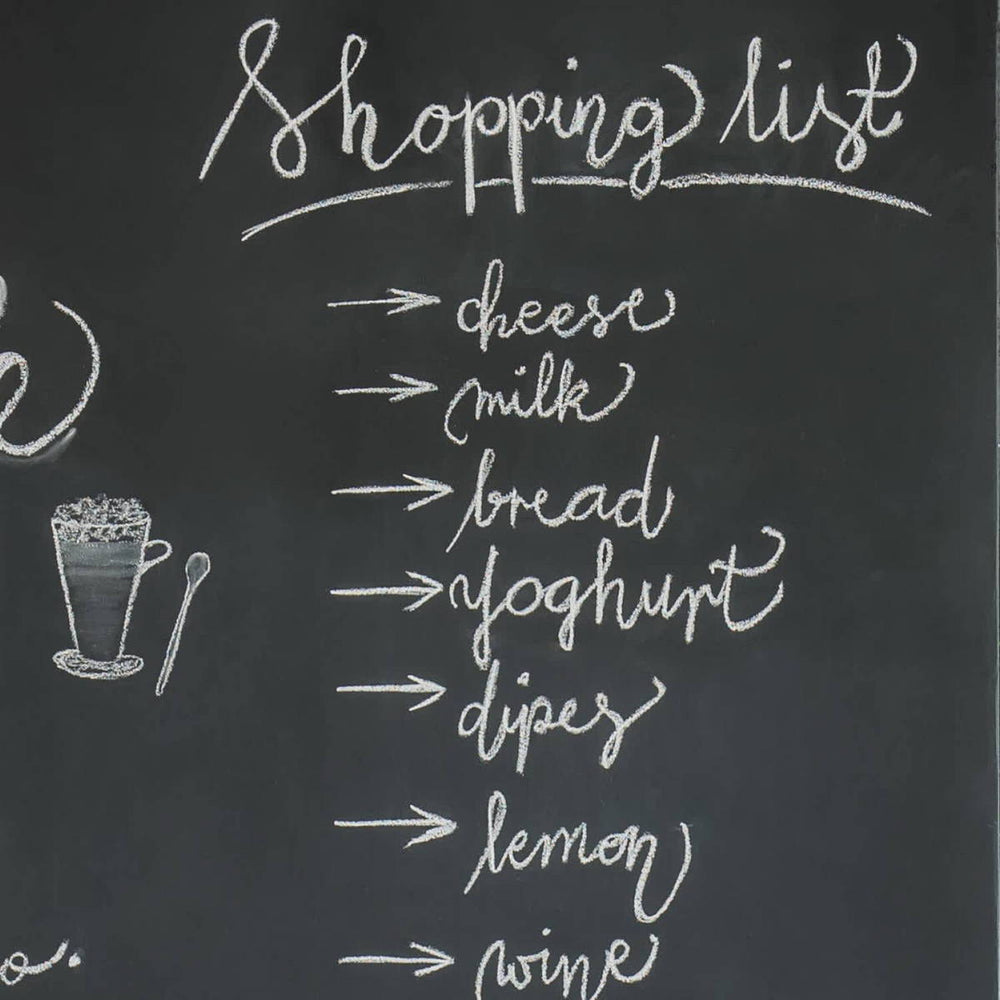 Shopping list
→ cheese
→ milk
→ bread
→ yoghurt
→ dipes
→ lemon
→ wine
o.